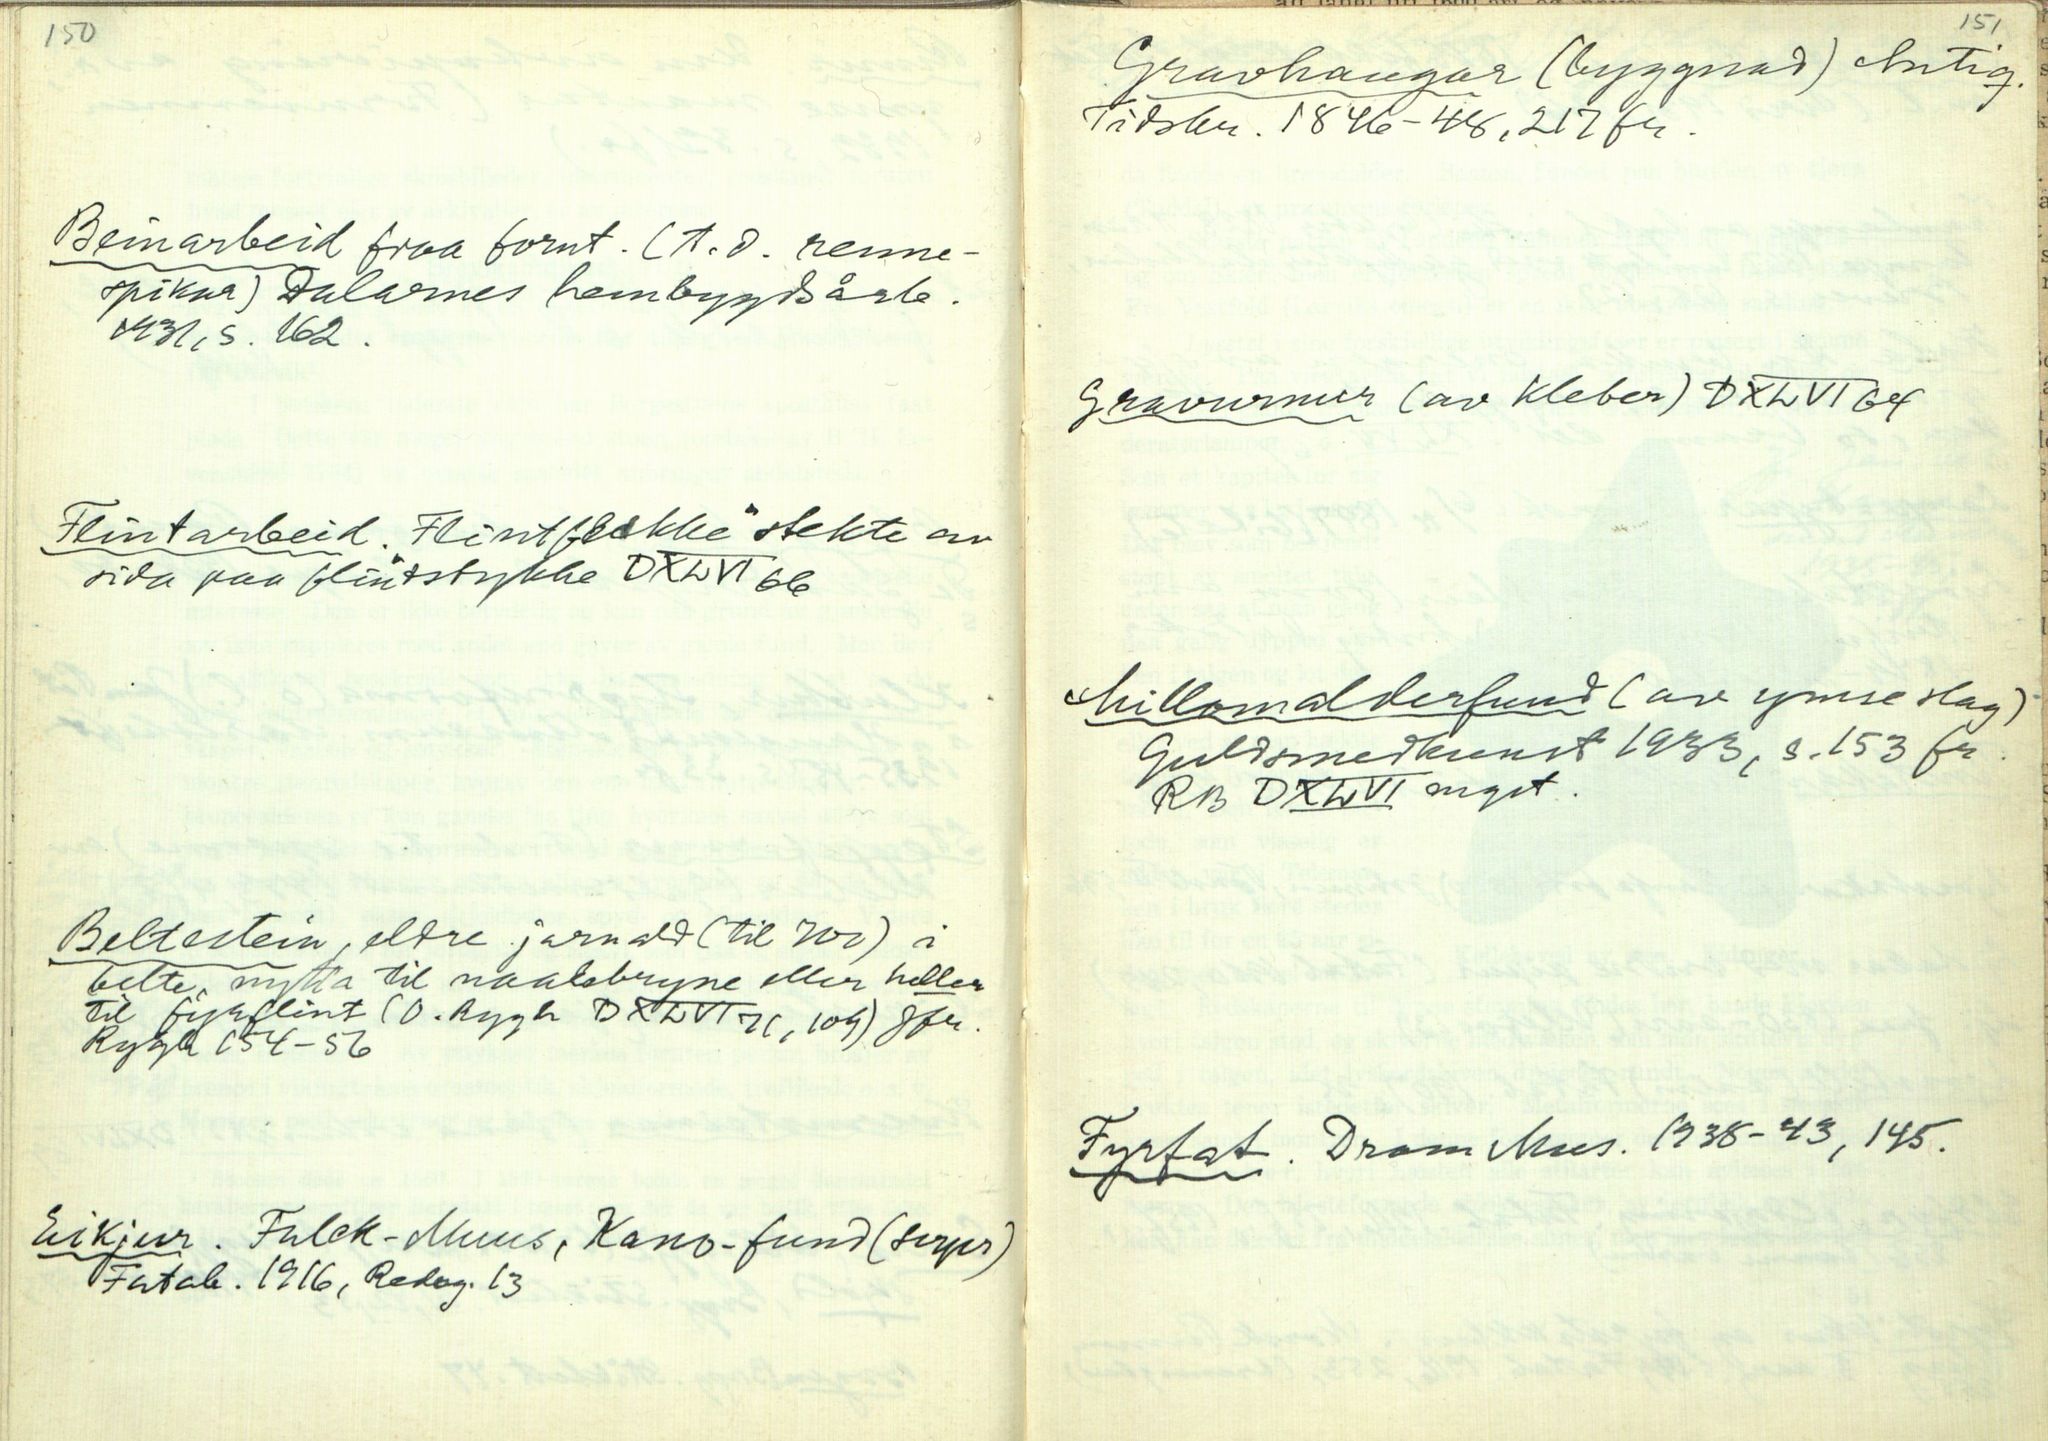 150
Beinarbeid fraa fornt. (t.d. renne-
spikar) Dalarnes hembygdsårb.
1931, s. 162.
Flintarbeid. Flintflekke "stekte av
sida paa flintstykke" DXLVI 66
Beltestein, eldre jarnald (til 700) i
belte, nytta til naalebryne eller heller
til fyrflint (O. Rygh DXLVI 71, 109) Jfr.
Rygh 154-56
Eikjur. Falck-Muus, Kano-fund
Fatab. 1916, Redog. 13
151
Gravhaugar (byggnad) Antiq.
Tidskr. 1846-48, 217 fr.
Gravurner (av kleber) DXLVI 64
Millomalderfund (av ymse slag)
Guldsmedkunst 1933, s. 153 fr.
RB DXLVI mgst.
Fyrfat. Dram Mus. 1938-43, 145.